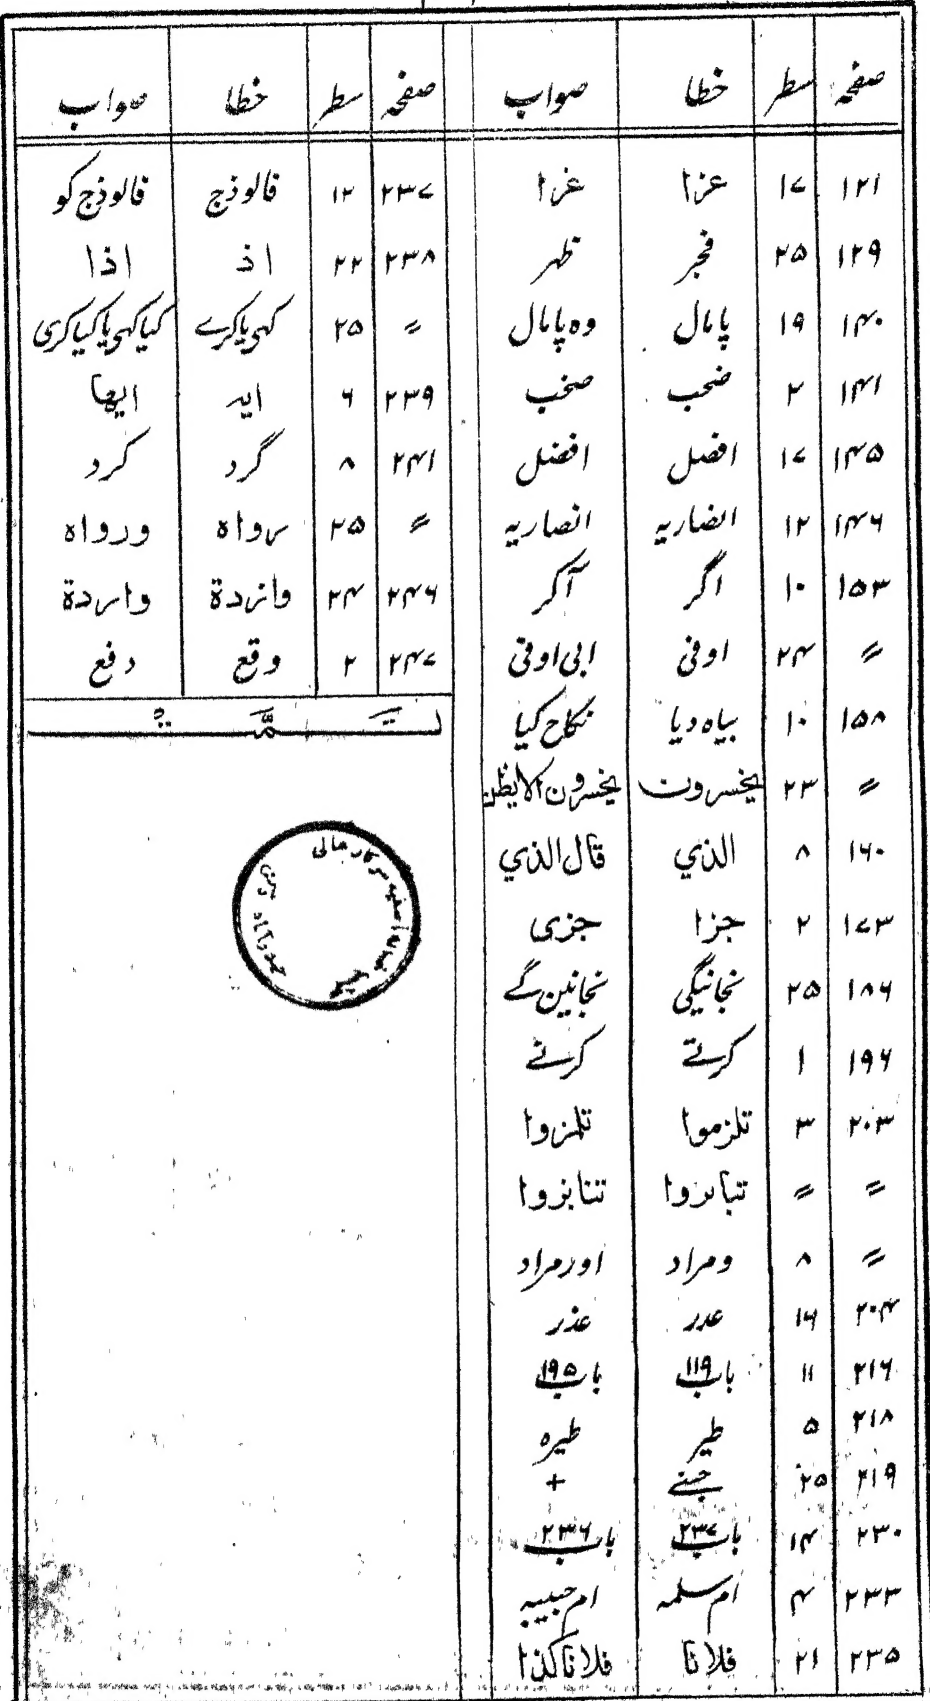 صفحہ سطر خطا صواب
۱۲۱ ۱۷ عزا غزا
۱۲۹ ۲۵ فجر ظہر
۱۴۰ ۱۹ پامال وہ پامال
۱۴۱ ۲ ضحب صخب
۱۴۵ ۱۷ افصل افضل
۱۴۶ ۱۲ انضاریہ انصاریہ
۱۵۳ ۱۰ اگر آکر
〃 ۲۴ اوفی ابی اوفی
۱۵۸ ۱۰ بیاہ دیا نکاح کیا
〃 ۲۳ یخسرون یخسرون الا یظن
۱۶۰ ۸ الذي قال الذي
۱۷۳ ۲ جزا جزی
۱۸۶ ۲۵ نجانیگی نجانین گے
۱۹۶ ۱ کرتے کرنے
۲۰۳ ۳ تلزموا تلمزوا
〃 〃 تنابروا تنابزوا
〃 ۸ ومراد اور مراد
۲۰۴ ۱۶ عدر عذر
۲۱۶ ۱۱ باب ۱۱۹ باب ۱۹۵
۲۱۸ ۵ طیر طیرہ
۲۱۹ ۲۵ جنے +
۲۳۰ ۱۴ باب ۲۳۷ باب ۲۳۶
۲۳۳ ۴ ام سلمہ ام حبیبہ
۲۳۵ ۲۱ فلانا فلانا کذا
صفحہ سطر خطا صواب
۲۳۷ ۱۲ فالوذج فالوذج کو
۲۳۸ ۲۲ اذ اذا
〃 ۲۵ کہی یا کرے کیا کہی یا کیا کری
۲۳۹ ۶ اید ایھا
۲۴۱ ۸ گرد کرد
〃 ۲۵ رواہ ورواہ
۲۴۶ ۲۴ وازدة واردة
۲۴۷ ۲ وقع دفع
تمّت